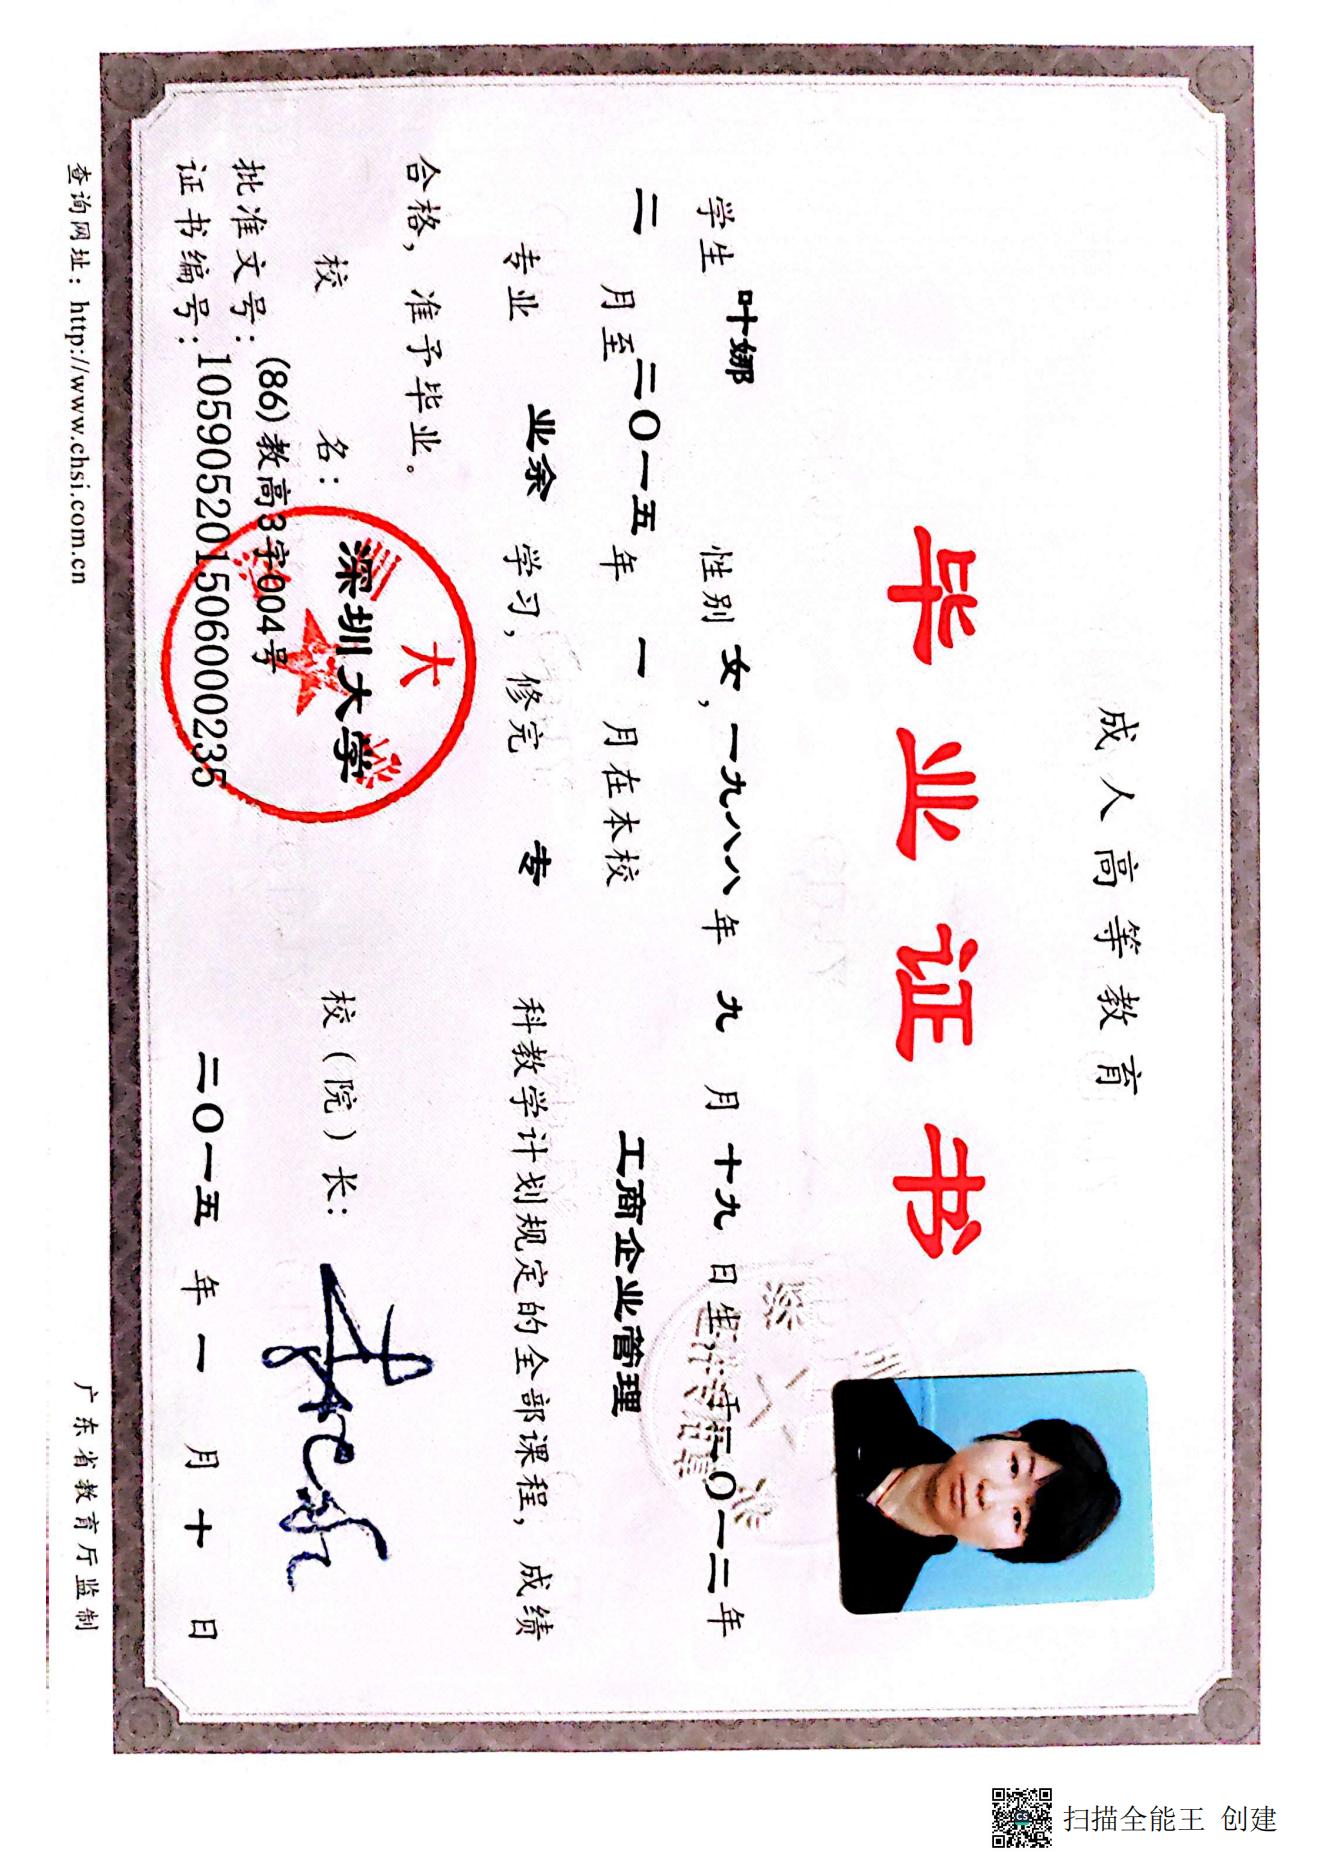 成人高等教育
毕业证书
学生 叶娜 性别 女，一九八八年 九 月 十九 日生，于二〇一二年
二 月至 二〇一五 年 一 月在本校 工商企业管理
专业 业余 学习，修完 专 科教学计划规定的全部课程，成绩
合格，准予毕业。
校 名：深圳大学 校（院）长：
批准文号：(86)教高3字004号
证书编号：105905201506000235 二〇一五 年 一 月 十 日
查询网址：http://www.chsi.com.cn 广东省教育厅监制
扫描全能王 创建